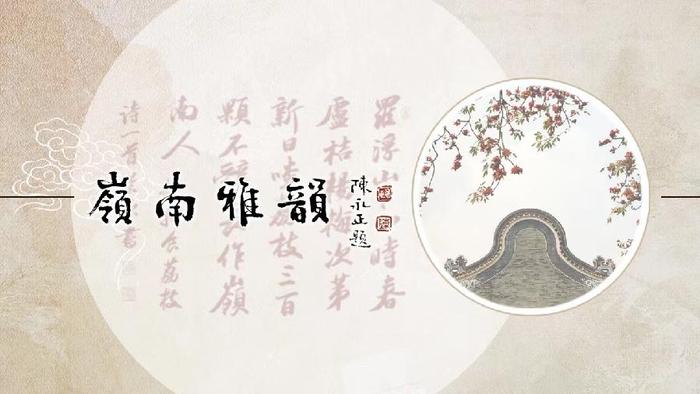 嶺南雅韻
陳永正題
羅浮山時春
盧桔楊梅次第
新日啖荔枝三百
顆不辭作嶺
南人食荔枝
詩一首書